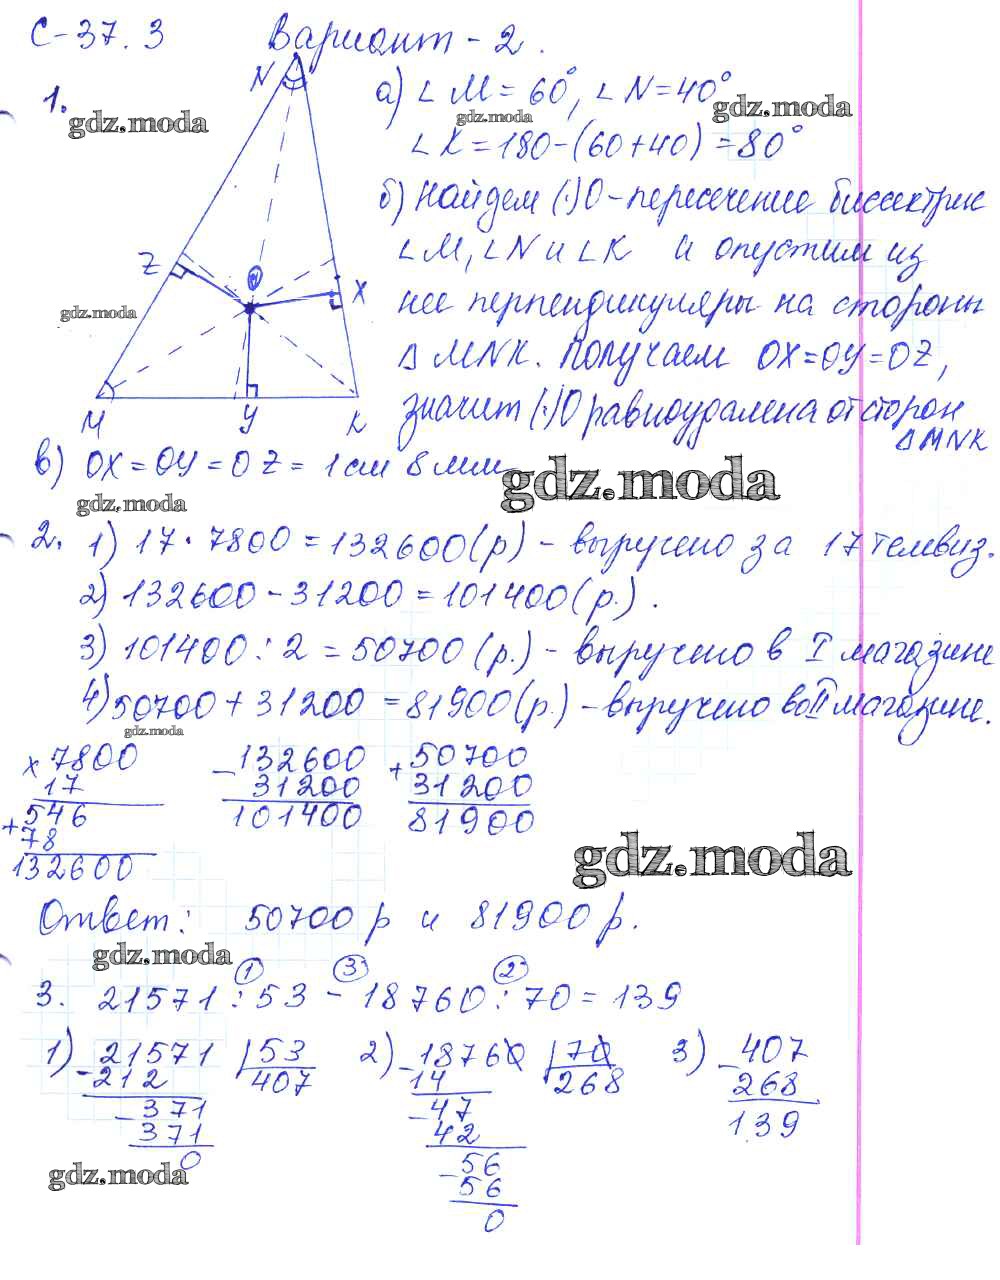 С-37.3 Вариант-2.
N
1.
а) ∠M = 60°, ∠N = 40°
gdz.moda
gdz.moda
gdz.moda
∠K = 180-(60+40) = 80°
б) Найдем (·)O - пересечение биссектрис
∠M, ∠N и ∠K и опустим из
Z
O
X
нее перпендикуляры на стороны
gdz.moda
Δ MNK. Получаем OX=OY=OZ,
M Y K
значит (·)O равноудалена от сторон
Δ MNK
в) OX = OY = OZ = 1 см 8 мм
gdz.moda
gdz.moda
2. 1) 17·7800 = 132600 (р) - выручено за 17 телевиз.
2) 132600 - 31200 = 101400 (р.).
3) 101400 : 2 = 50700 (р.) - выручено в I магазине
4) 50700 + 31200 = 81900 (р.) - выручено во II магазине.
gdz.moda
x 7800
17
+ 546
78
132600
- 132600
31200
101400
+ 50700
31200
81900
gdz.moda
Ответ: 50700 р и 81900 р.
gdz.moda
1 3 2
3. 21571 : 53 - 18760 : 70 = 139
1) - 21571 | 53
212 407
- 371
371
0
2) - 18760 | 70
14 268
- 47
42
- 56
56
0
3) - 407
268
139
gdz.moda